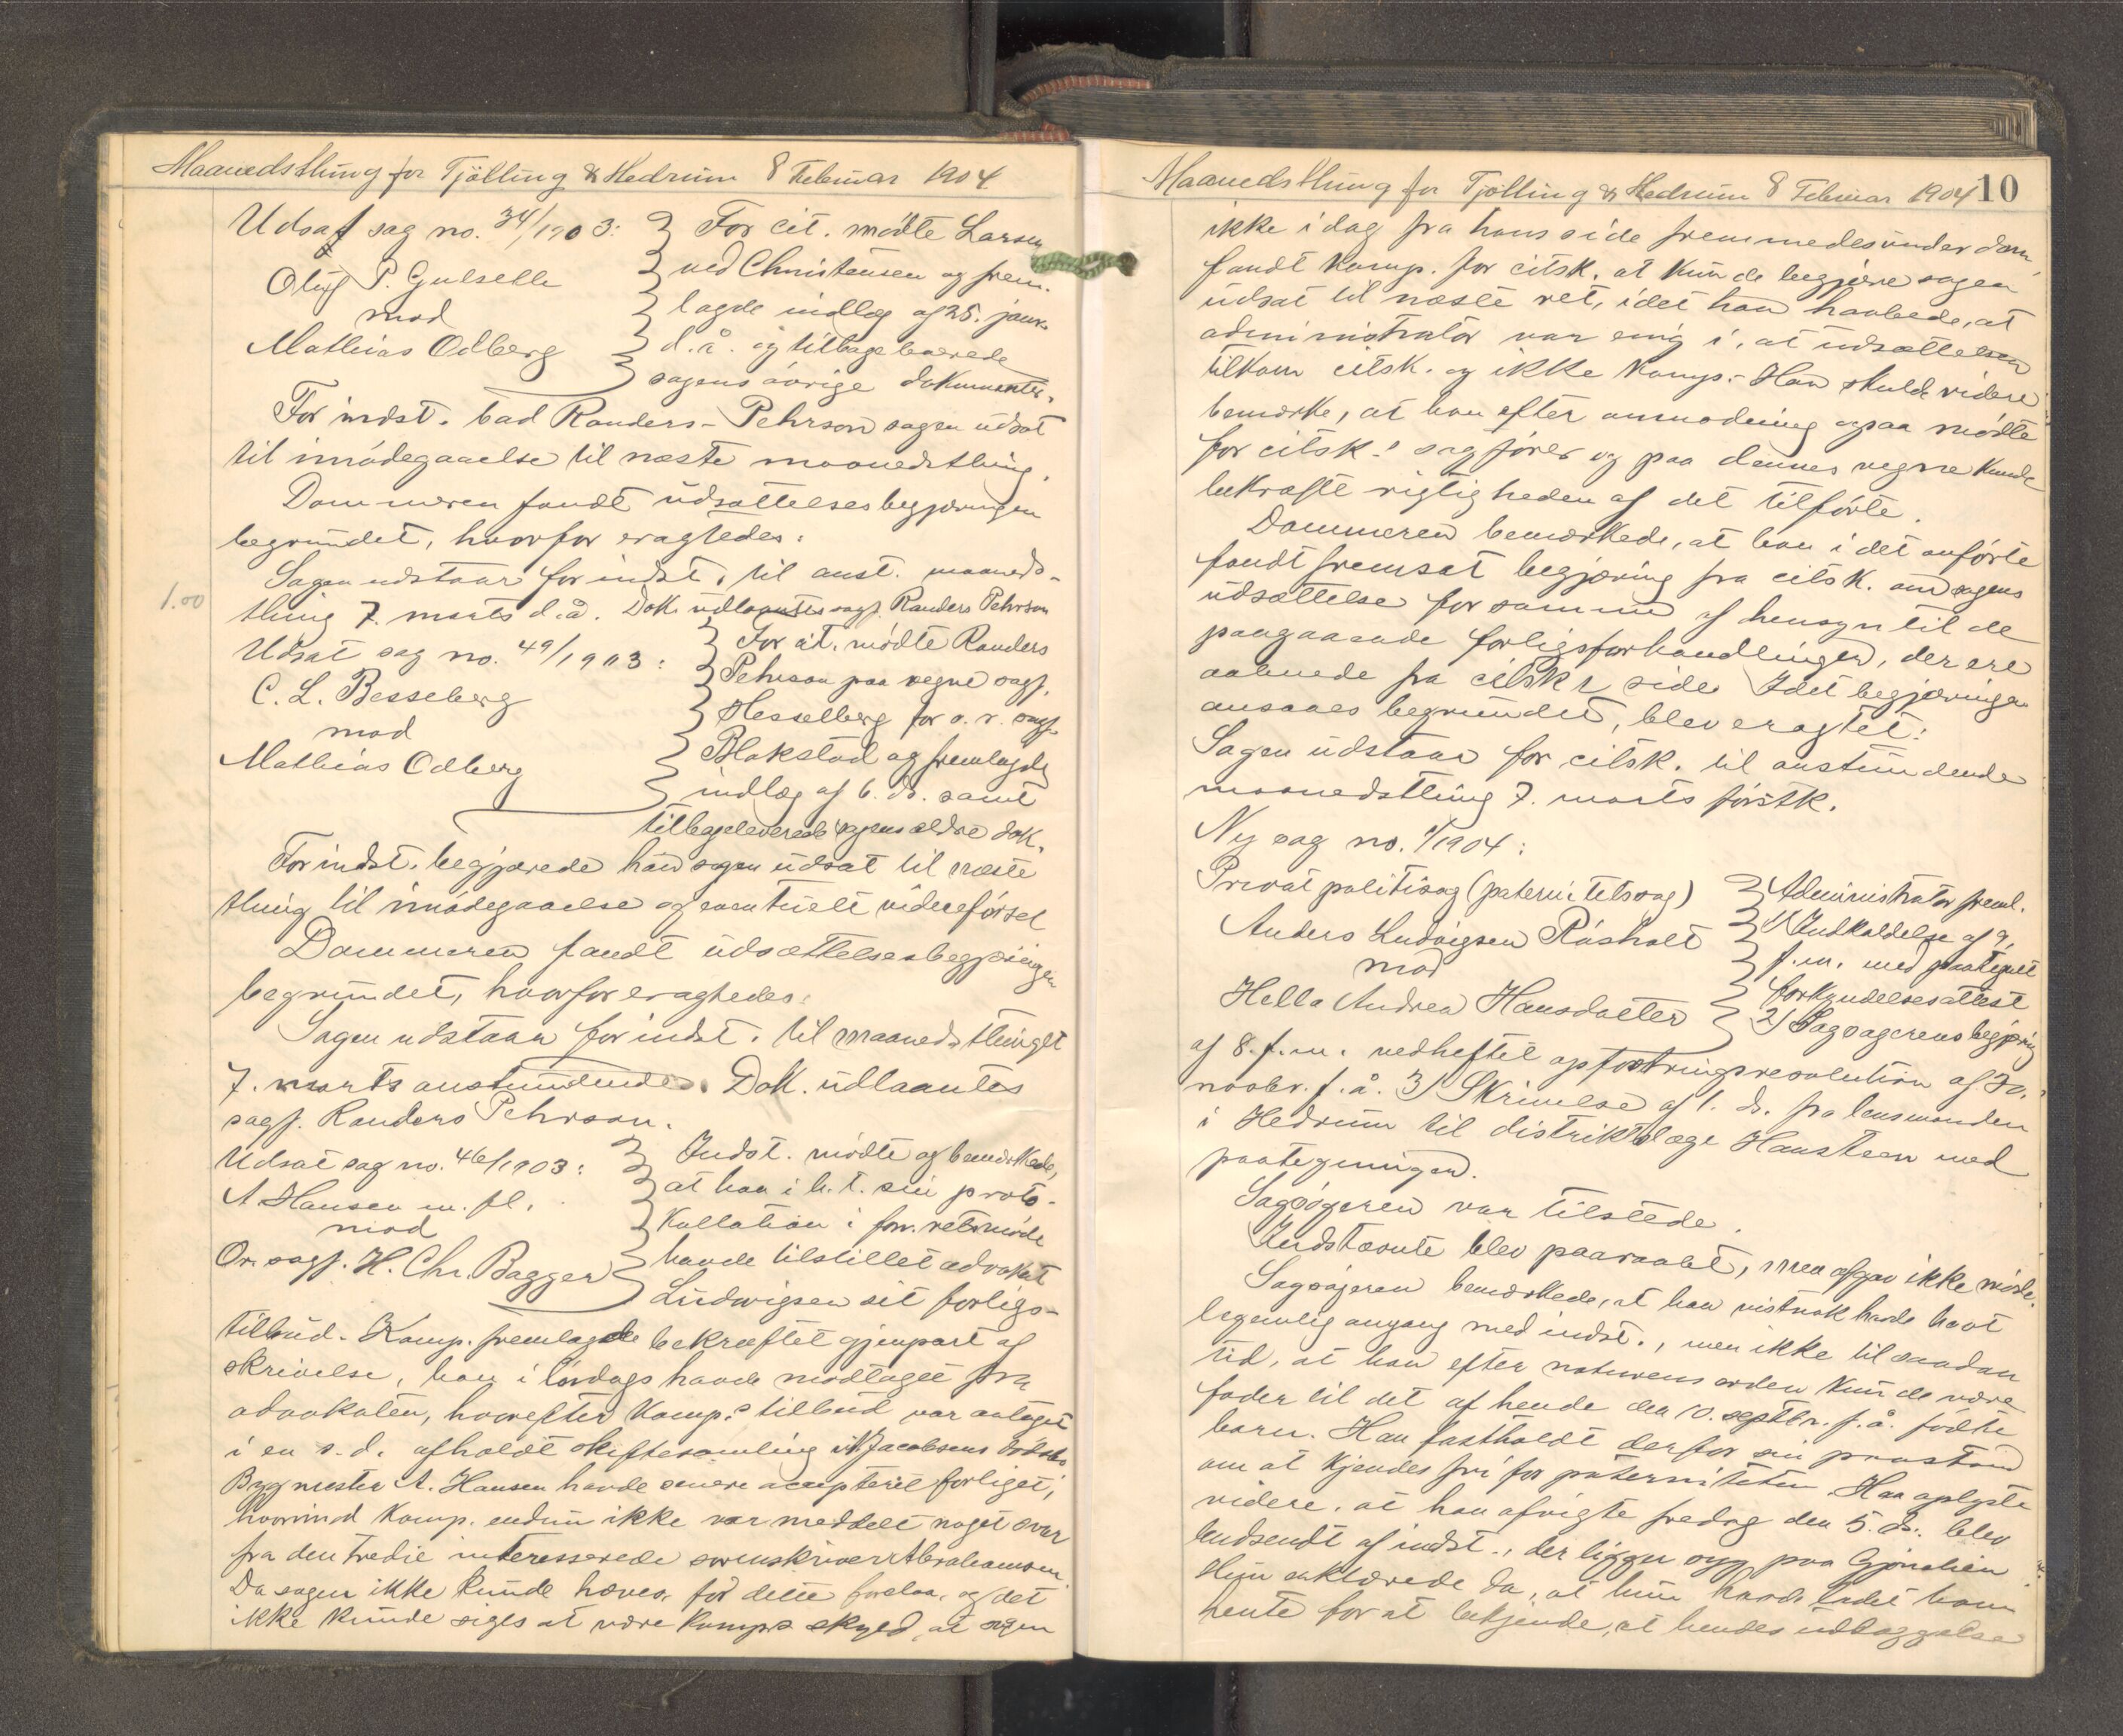 Maanedsthing for Tjölling & Hedrum 8 Februar 1904
Udsat sag no. 34/1903:
Oluf P. Gulselle
mod
Mathias Odberg
For cit. mödte Larsen
ved Christensen og frem-
lagde indlæg af 25. janr.
d.å. og tilbageleverede
sagens övrige dokumenter.
For indst. bad Randers-Pehrson sagen udsat
til imödegaaelse til næste maanedsthing.
Dommeren fandt udsættelsesbegjæringen
begrundet, hvorfor eragtedes:
Sagen udstaar for indst. til anst. maaneds-
1.00
thing 7. marts d.å. Dok. udlaantes sagf. Randers Pehrson
Udsat sag no. 49/1903:
C. L. Besseberg
mod
Mathias Odberg
For cit. mödte Randers
Pehrson paa vegne sagf.
Hesselberg for o.r. sagf.
Blakstad og fremlagde
indlæg af 6. ds. samt
tilbageleverede sagens ældre dok.
For indst. begjærede han sagen udsat til næste
thing til imödegaaelse og eventuelt videreförsel
Dommeren fandt udsættelsesbegjæringen
begrundet, hvorfor eragtedes:
Sagen udstaar for indst. til maanedsthinget
7. marts anstundende. Dok. udlaantes
sagf. Randers Pehrson.
Udsat sag no. 46/1903:
A Hansen m. fl.
mod
Or. sagf. H. Chr. Bagger
Indst. mödte og bemærkede,
at han i h.t. sin proto-
kollation i forr. retsmöde
havde tilstillet advokat
Ludwigsen sit forligs-
tilbud. Komp. fremlagde bekræftet gjenpart af
skrivelse, han i lördags havde modtaget fra
advokaten, hvorefter komp.s tilbud var antaget
i en s.d. afholdt skiftesamling i N. Jacobsens dödsbo
Bygmester A. Hansen havde senere accepteret forliget,
hvorimod komp. endnu ikke var meddelt noget svar
fra den tredie interesserede sorenskriver Abrahamsen.
Da sagen ikke kunde hæves, för dette forelaa, og det
ikke kunde siges at være komps skyld, at sagen
Maanedsthing for Tjölling & Hedrum 8 Februar 1904 10
ikke idag fra hans side fremmedes under dom,
fandt komp. for citsk. at kunde begjære sagen
udsat til næste ret, idet han haabede, at
administrator var enig i, at udsættelsen
tilkom citsk. og ikke komp.- Han skulde videre
bemærke, at han efter anmodning ogsaa mödte
for citsk.s sagförer og paa dennes vegne kunde
bekræfte rigtigheden af det tilförte.
Dommeren bemærkede, at han i det anförte
fandt fremsat begjæring fra citsk. om sagens
udsættelse for samme af hensyn til de
paagaaende forligsforhandlinger, der ere
aabnede fra citsk.s side. Idet begjæringen
ansaaes begrundet, blev eragtet:
Sagen udstaar for citsk. til anstundende
maanedsthing 7. marts förstk.
Ny sag no. 1/1904:
Privat politisag (paternitetssag)
Anders Ludvigsen Råsholt
mod
Hella Andrea Hansdatter
Administrator freml.
1) Indkaldelse af 9.
f.m. med paategnet
forkyndelsesattest
2) Sagsögerens begjæring
af 8. f.m. vedheftet opfostringsresolution af 30.
novbr. f.å. 3) Skrivelse af 1. ds. fra lensmanden
i Hedrum til distriktslæge Hansteen med
paategninger.
Sagsögeren var tilstede.
Indstævnte blev paaraabt, men afgav ikke möde.
Sagsögeren bemærkede, at han vistnok havde havt
legemlig omgang med indst., men ikke til saadan
tid, at han efter naturens orden kunde være
fader til det af hende den 10. septbr. f.å. födte
barn. Han fastholdt derfor sin paastand
om at kjendes fri for paterniteten. Han oplyste
videre, at han afvigte fredag den 5. ds. blev
budsendt af indst., der ligger syg paa Gjönalien.
Hun erklærede da, at hun havde ladet ham
hente for at bekjende, at hendes udlæggelse